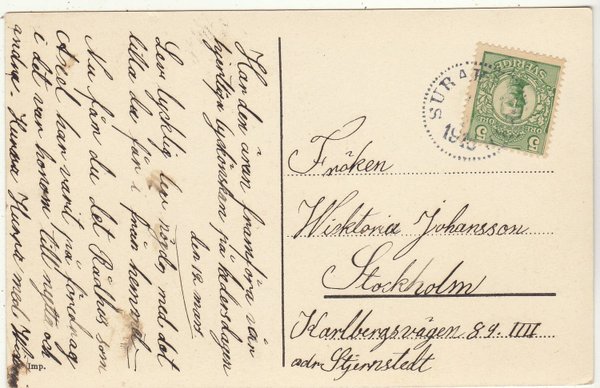 Har den äran framföra vår
hjertliga lyckönskan på hedersdagen
den 12 mars
Lev lycklig lev nöjd, med det
lilla du får i från hemmet
Nu får du det Rådhus som
Axel har varit på
i det var honom till nytta och
andra Hurra Hurra med
Imp.
SURAH
1915
SVERIGE
5
5
Fröken
Wicktoria Johansson
Stockholm
Karlbergsvägen 89. IIII
adr Stjernstedt